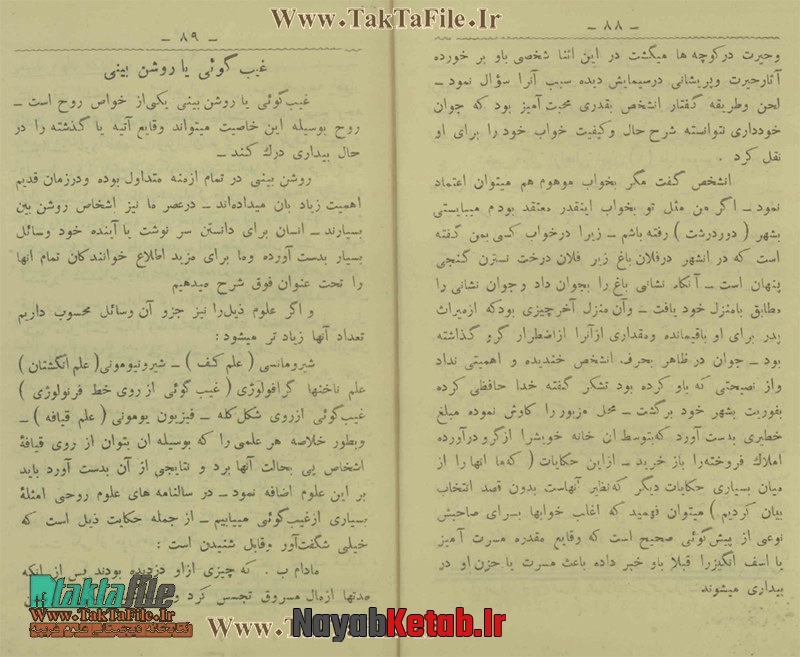 Www.TakTaFile.Ir
— ۸۸ —
وحیرت درکوچه ها میگشت در این اثنا شخصی باو بر خورده
آثارحیرت وپریشانی درسیمایش دیده سبب آنرا سؤال نمود ـ
لحن وطریقه گفتار انشخص بقدری محبت آمیز بود که جوان
خودداری نتوانسته شرح حال وکیفیت خواب خود را برای او
نقل کرد .
انشخص گفت مگر بخواب موهوم هم میتوان اعتماد
نمود ـ اگر من مثل تو بخواب اینقدر معتقد بودم میبایستی
بشهر ( دوردرشت ) رفته باشم ـ زیرا درخواب کسی بمن گفته
است که در انشهر درفلان باغ زیر فلان درخت نسترن گنجی
پنهان است ـ آنگاه نشانی باغ را بجوان داد وجوان نشانی را
مطابق بامنزل خود یافت ـ وآن منزل آخرچیزی بودکه ازمیراث
پدر برای او باقیمانده ومقداری ازآنرا ازاضطرار گرو گذاشته
بود ـ جوان در ظاهر بحرف انشخص خندیده و اهمیتی نداد
واز نصیحتی که باو کرده بود تشکر گفته خدا حافظی کرده
بفوریت بشهر خود برگشت ـ محل مزبور را کاوش نموده مبلغ
خطیری بدست آورد که بتوسط ان خانه خویشرا ازگرو درآورده
املاك فروخته‌را باز خرید ـ ازاین حکایات ( که‌ما انها را از
میان بسیاری حکایات دیگر که‌نظایر آنهاست بدون قصد انتخاب
بیان کردیم ) میتوان فهمید که اغلب خوابها بسرای صاحبش
نوعی از پیش‌گوئی صحیح است که وقایع مقدره مسرت آمیز
یا اسف انگیزرا قبلا باو خبر داده باعث مسرت یا حزن او در
بیداری میشوند
— ۸۹ —
غیب گوئی یا روشن بینی
غیب‌گوئی یا روشن بینی یکی‌از خواص روح است ـ
روح بوسیله این خاصیت میتواند وقایع آتیه یا گذشته را در
حال بیداری درك کند ـ
روشن بینی در تمام ازمنه متداول بوده ودرزمان قدیم
اهمیت زیاد بان میداده‌اند ـ درعصر ما نیز اشخاص روشن بین
بسیارند ـ انسان برای دانستن سر نوشت یا آینده خود وسائل
بسیار بدست آورده وما برای مزید اطلاع خوانندکان تمام انها
را تحت عنوان فوق شرح میدهیم
و اگر علوم ذیل‌را نیز جزو آن وسائل محسوب داریم
تعداد آنها زیاد تر میشود :
شیرومانسی ( علم کف ) ـ شیرونیومونی( علم انگشتان )
علم ناخنها گرافولوژی ( غیب گوئی از روی خط فرنولوژی )
غیب‌گوئی ازروی شکل کله ـ فیزیون یومونی ( علم قیافه ) ـ
وبطور خلاصه هر علمی را که بوسیله ان بتوان از روی قیافهٔ
اشخاص پی بحالت آنها برد و نتایجی از آن بدست آورد باید
بر این علوم اضافه نمود ـ در سالنامه های علوم روحی امثلهٔ
بسیاری ازغیب‌گوئی مییابیم ـ از جمله حکایت ذیل است که
خیلی شگفت‌آور وقابل شنیدن است :
مادام ب . که چیزی ازاو دزدیده بودند پس از انکه
مدتها ازمال مسروق تجسس کرد و
taktafile
Www.TakTaFile.Ir
Www.TakTaFile.Ir
NayabKetab.Ir